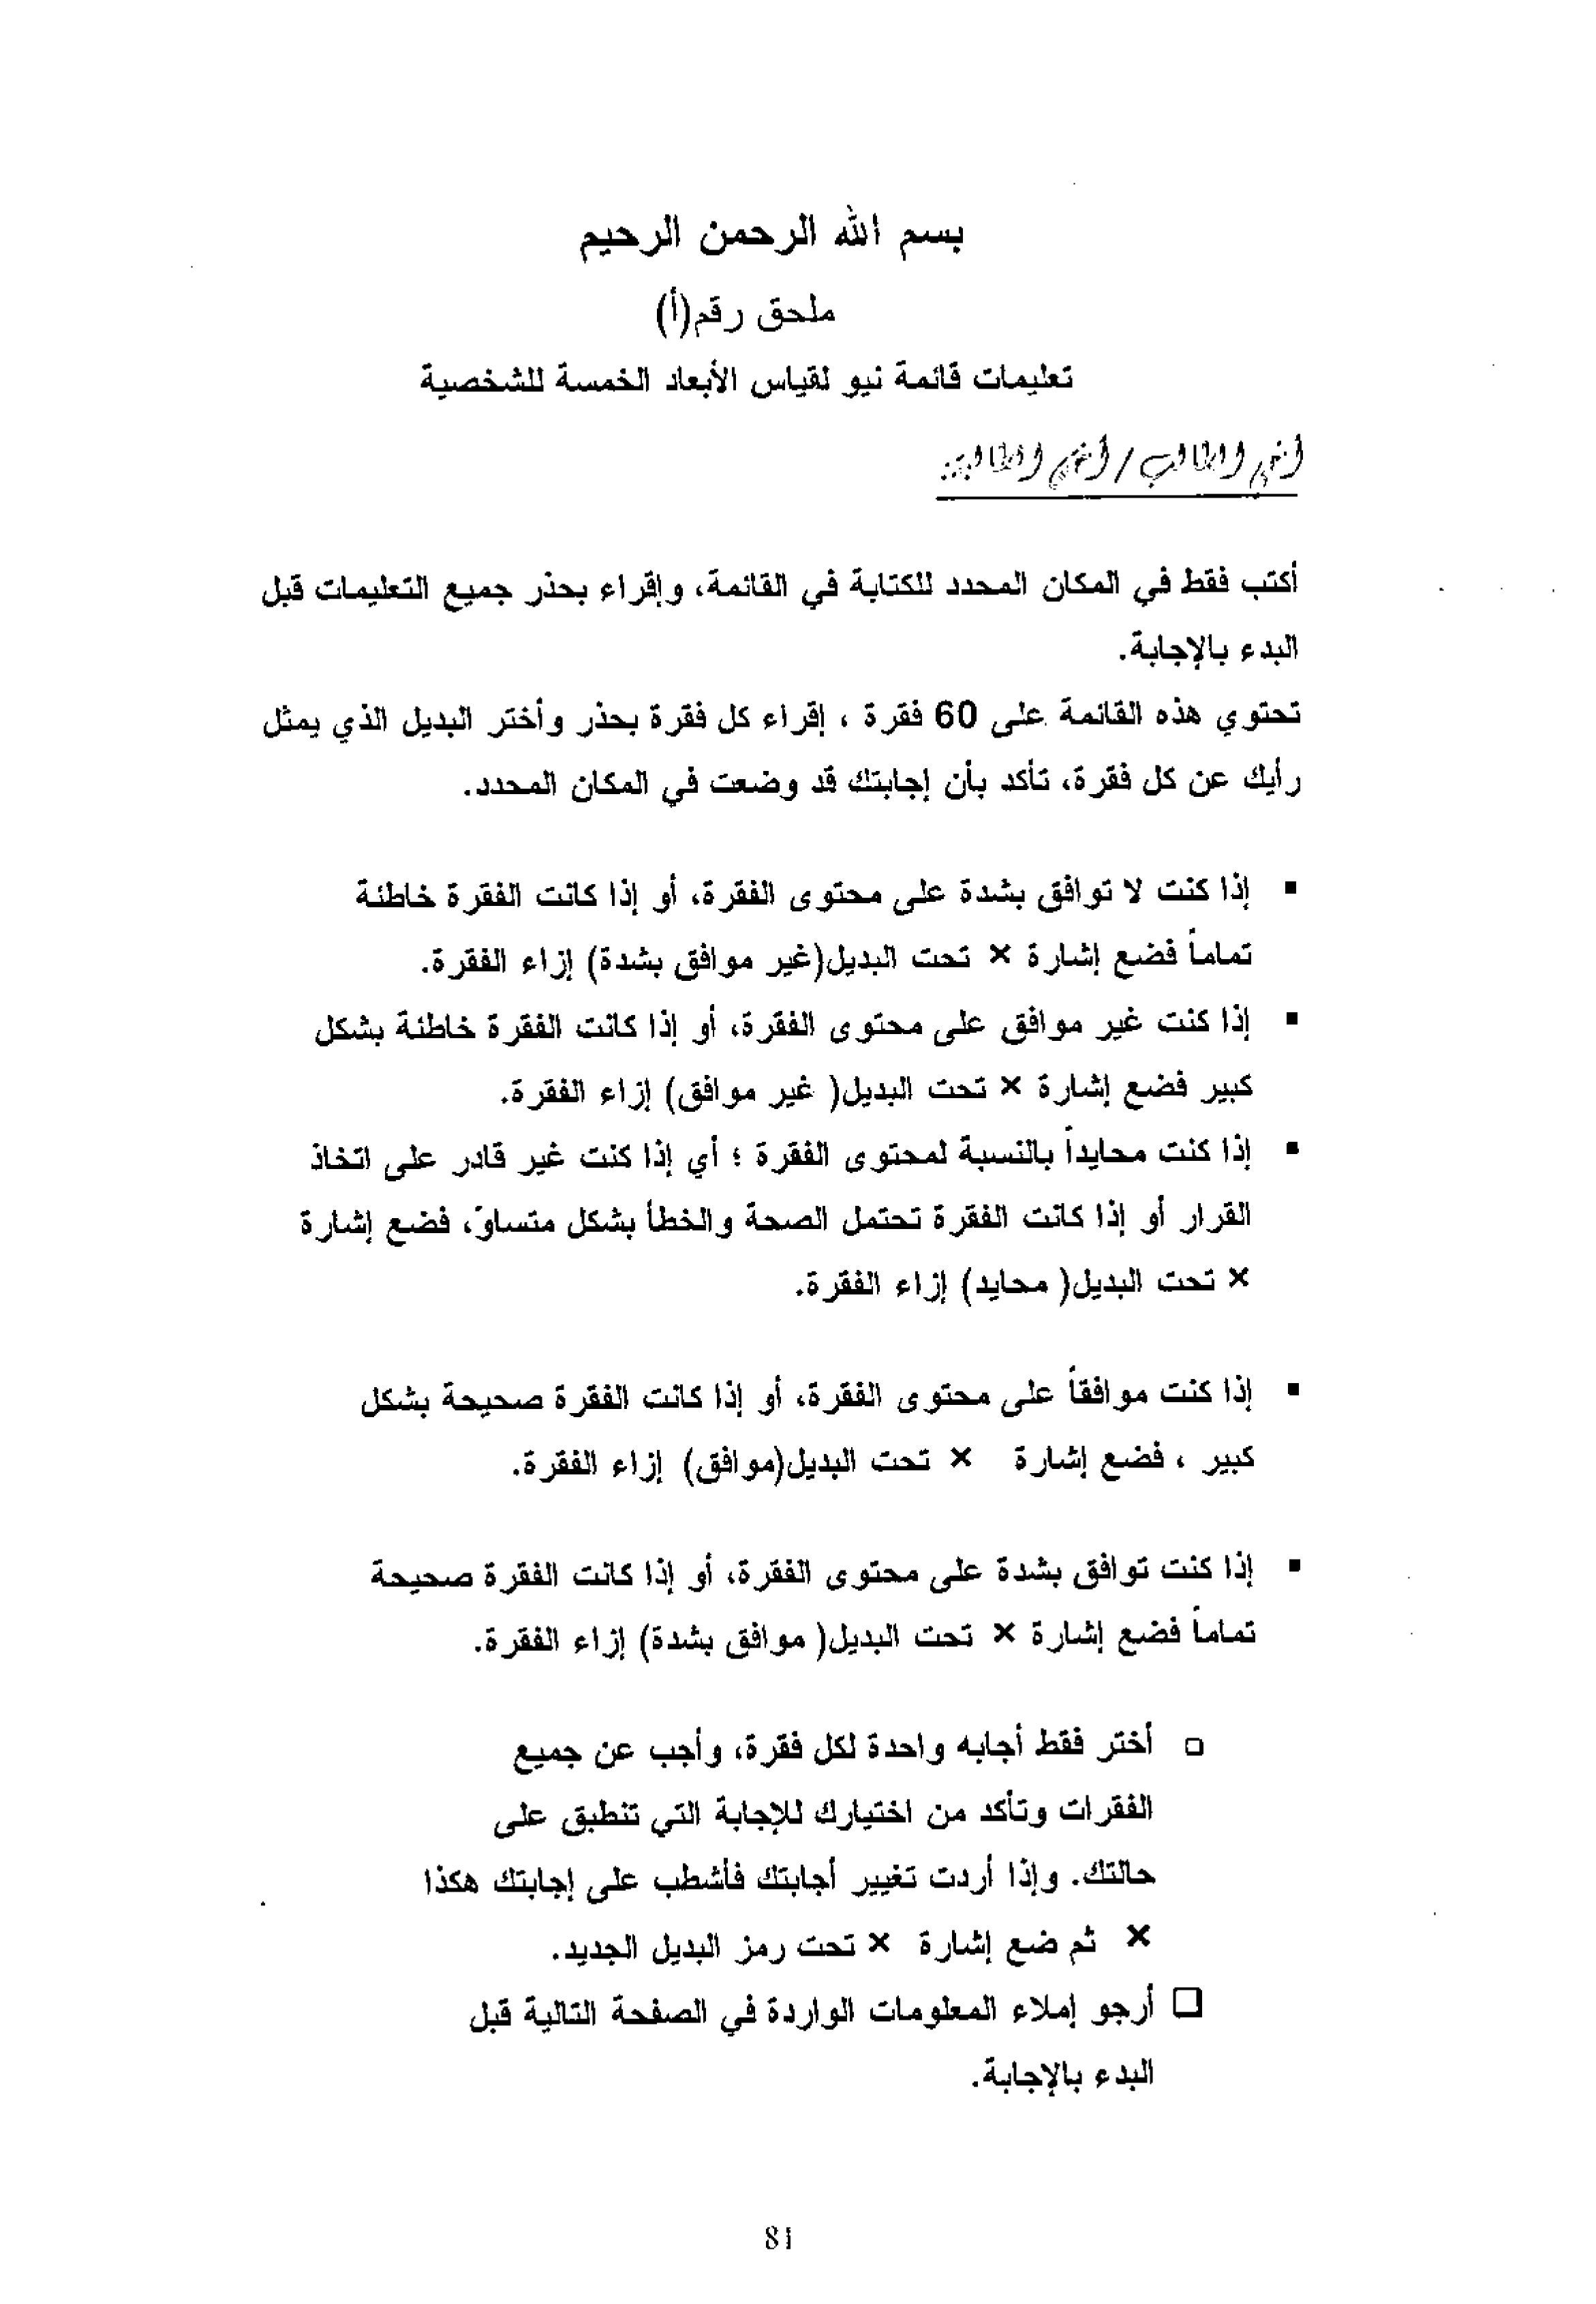 بسم الله الرحمن الرحيم
ملحق رقم(أ)
تعليمات قائمة نيو لقياس الأبعاد الخمسة للشخصية
أخي الطالب/أختي الطالبة:
أكتب فقط في المكان المحدد للكتابة في القائمة، وإقراء بحذر جميع التعليمات قبل
البدء بالإجابة.
تحتوي هذه القائمة على 60 فقرة ، إقراء كل فقرة بحذر وأختر البديل الذي يمثل
رأيك عن كل فقرة، تأكد بأن إجابتك قد وضعت في المكان المحدد.
▪ إذا كنت لا توافق بشدة على محتوى الفقرة، أو إذا كانت الفقرة خاطئة
تماماً فضع إشارة × تحت البديل(غير موافق بشدة) إزاء الفقرة.
▪ إذا كنت غير موافق على محتوى الفقرة، أو إذا كانت الفقرة خاطئة بشكل
كبير فضع إشارة × تحت البديل( غير موافق) إزاء الفقرة.
▪ إذا كنت محايداً بالنسبة لمحتوى الفقرة ؛ أي إذا كنت غير قادر على اتخاذ
القرار أو إذا كانت الفقرة تحتمل الصحة والخطأ بشكل متساوٍ، فضع إشارة
× تحت البديل( محايد) إزاء الفقرة.
▪ إذا كنت موافقاً على محتوى الفقرة، أو إذا كانت الفقرة صحيحة بشكل
كبير ، فضع إشارة × تحت البديل(موافق) إزاء الفقرة.
▪ إذا كنت توافق بشدة على محتوى الفقرة، أو إذا كانت الفقرة صحيحة
تماماً فضع إشارة × تحت البديل( موافق بشدة) إزاء الفقرة.
□ أختر فقط أجابه واحدة لكل فقرة، وأجب عن جميع
الفقرات وتأكد من اختيارك للإجابة التي تنطبق على
حالتك. وإذا أردت تغيير أجابتك فأشطب على إجابتك هكذا
× ثم ضع إشارة × تحت رمز البديل الجديد.
□ أرجو إملاء المعلومات الواردة في الصفحة التالية قبل
البدء بالإجابة.
81